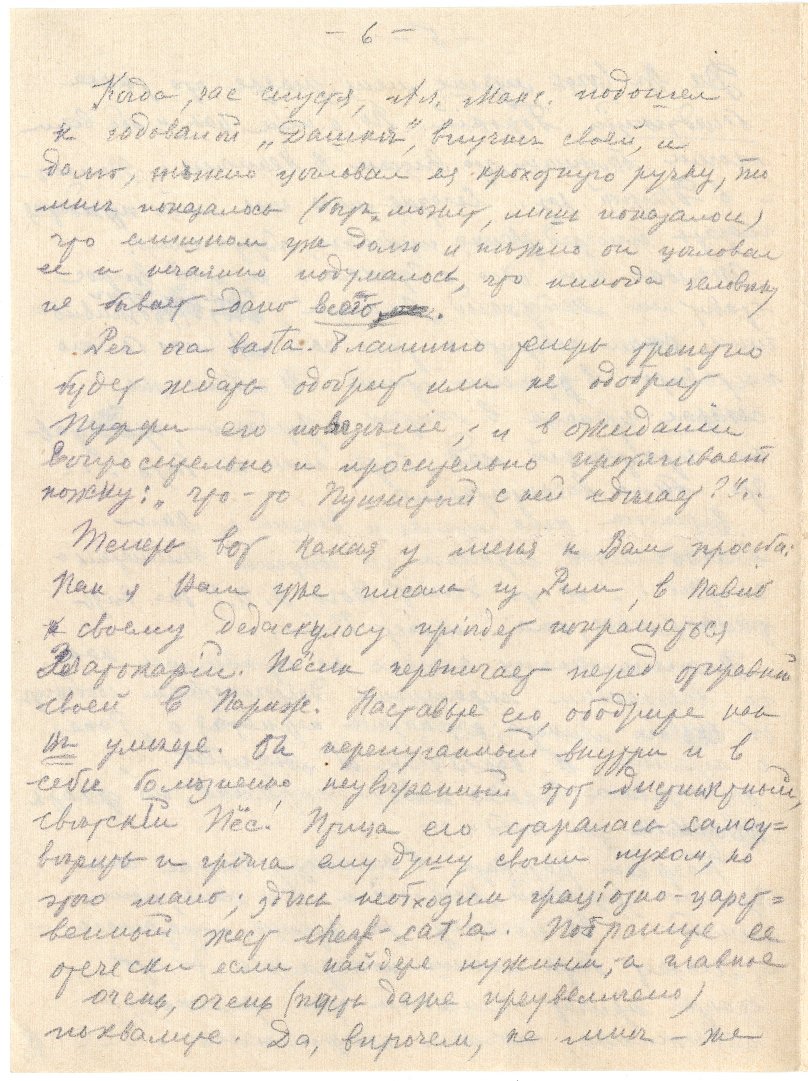 - 6 -
Когда, час спустя, Ал. Макс. подошел
к годовалой „Дашкѣ", внучкѣ своей, и
долго, нѣжно цѣловал ея крохотную ручку, то
мнѣ показалось (быть может, лишь показалось)
что слишком уж долго и нѣжно он цѣловал
ее и нечаянно подумалось, что никогда человѣку
не бывает дано всего.
Per ora basta. Фламинго теперь трепетно
будет ждать одобрит или не одобрит
его поведѣніе, и в ожиданіи
вопросительно и просительно протягивает
ножку: „что-то Пушистый с ней сдѣлает?"..
Теперь вот какая у меня к Вам просьба:
Как я Вам уже писала из Рима, в Павію
к своему придет попрощаться
Пёсик нервничает перед отправкой
своей в Париж. Наставьте его, ободрите как
Вы умѣете. Он перепуганный внутри и в
себѣ болѣзненно неувѣренный этот дистинктный,
свѣтскій Пёс! Птица его старалась самоу=
вѣрить и грѣла ему душу своим пухом, но
этого мало; здѣсь необходим граціозно-царст=
венный жест cheaf-cat'а. Потрепите ее
отечески если найдете нужным, а главное
очень, очень (пусть даже преувеличено)
похвалите. Да, впрочем, не мнѣ-же